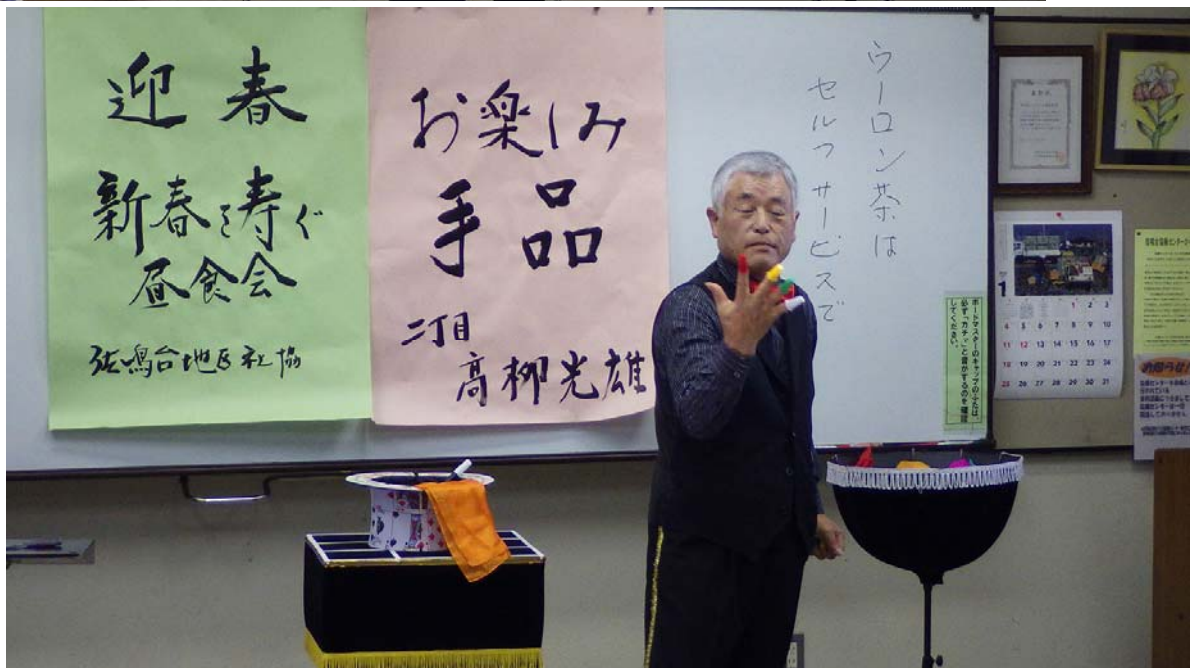 迎春
新春を寿ぐ
昼食会
佐鳴台地区社協
お楽しみ
手品
二丁目
高柳光雄
ウーロン茶は
セルフサービスで
ボードマスターのキャップのふたは、
必ず「カチッ」と音がするのを確認
してください。
1
1 2 3
4 5 6 7 8 9 10
11 12 13 14 15 16 17
18 19 20 21 22 23 24
25 26 27 28 29 30 31
お知らせ!